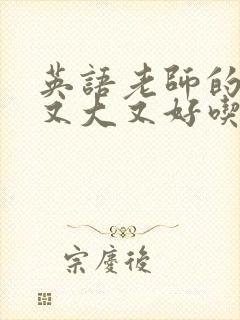 英語老師的
又大又好喫
宗慶後